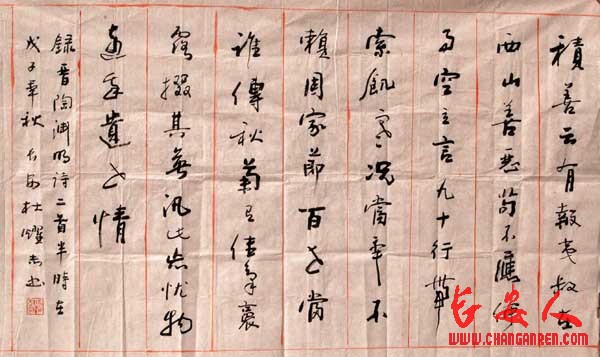 積善云有報夷叔在
西山善惡苟不應何
事空立言九十行帶
索飢寒況當年不
賴固窮節百世當
誰傳秋菊有佳色裛
露掇其英汎此忘憂物
遠我遺世情
錄晉陶渊明诗二首半時在
戊子年秋 长安杜耀志书
长安人
WWW.CHANGANREN.COM